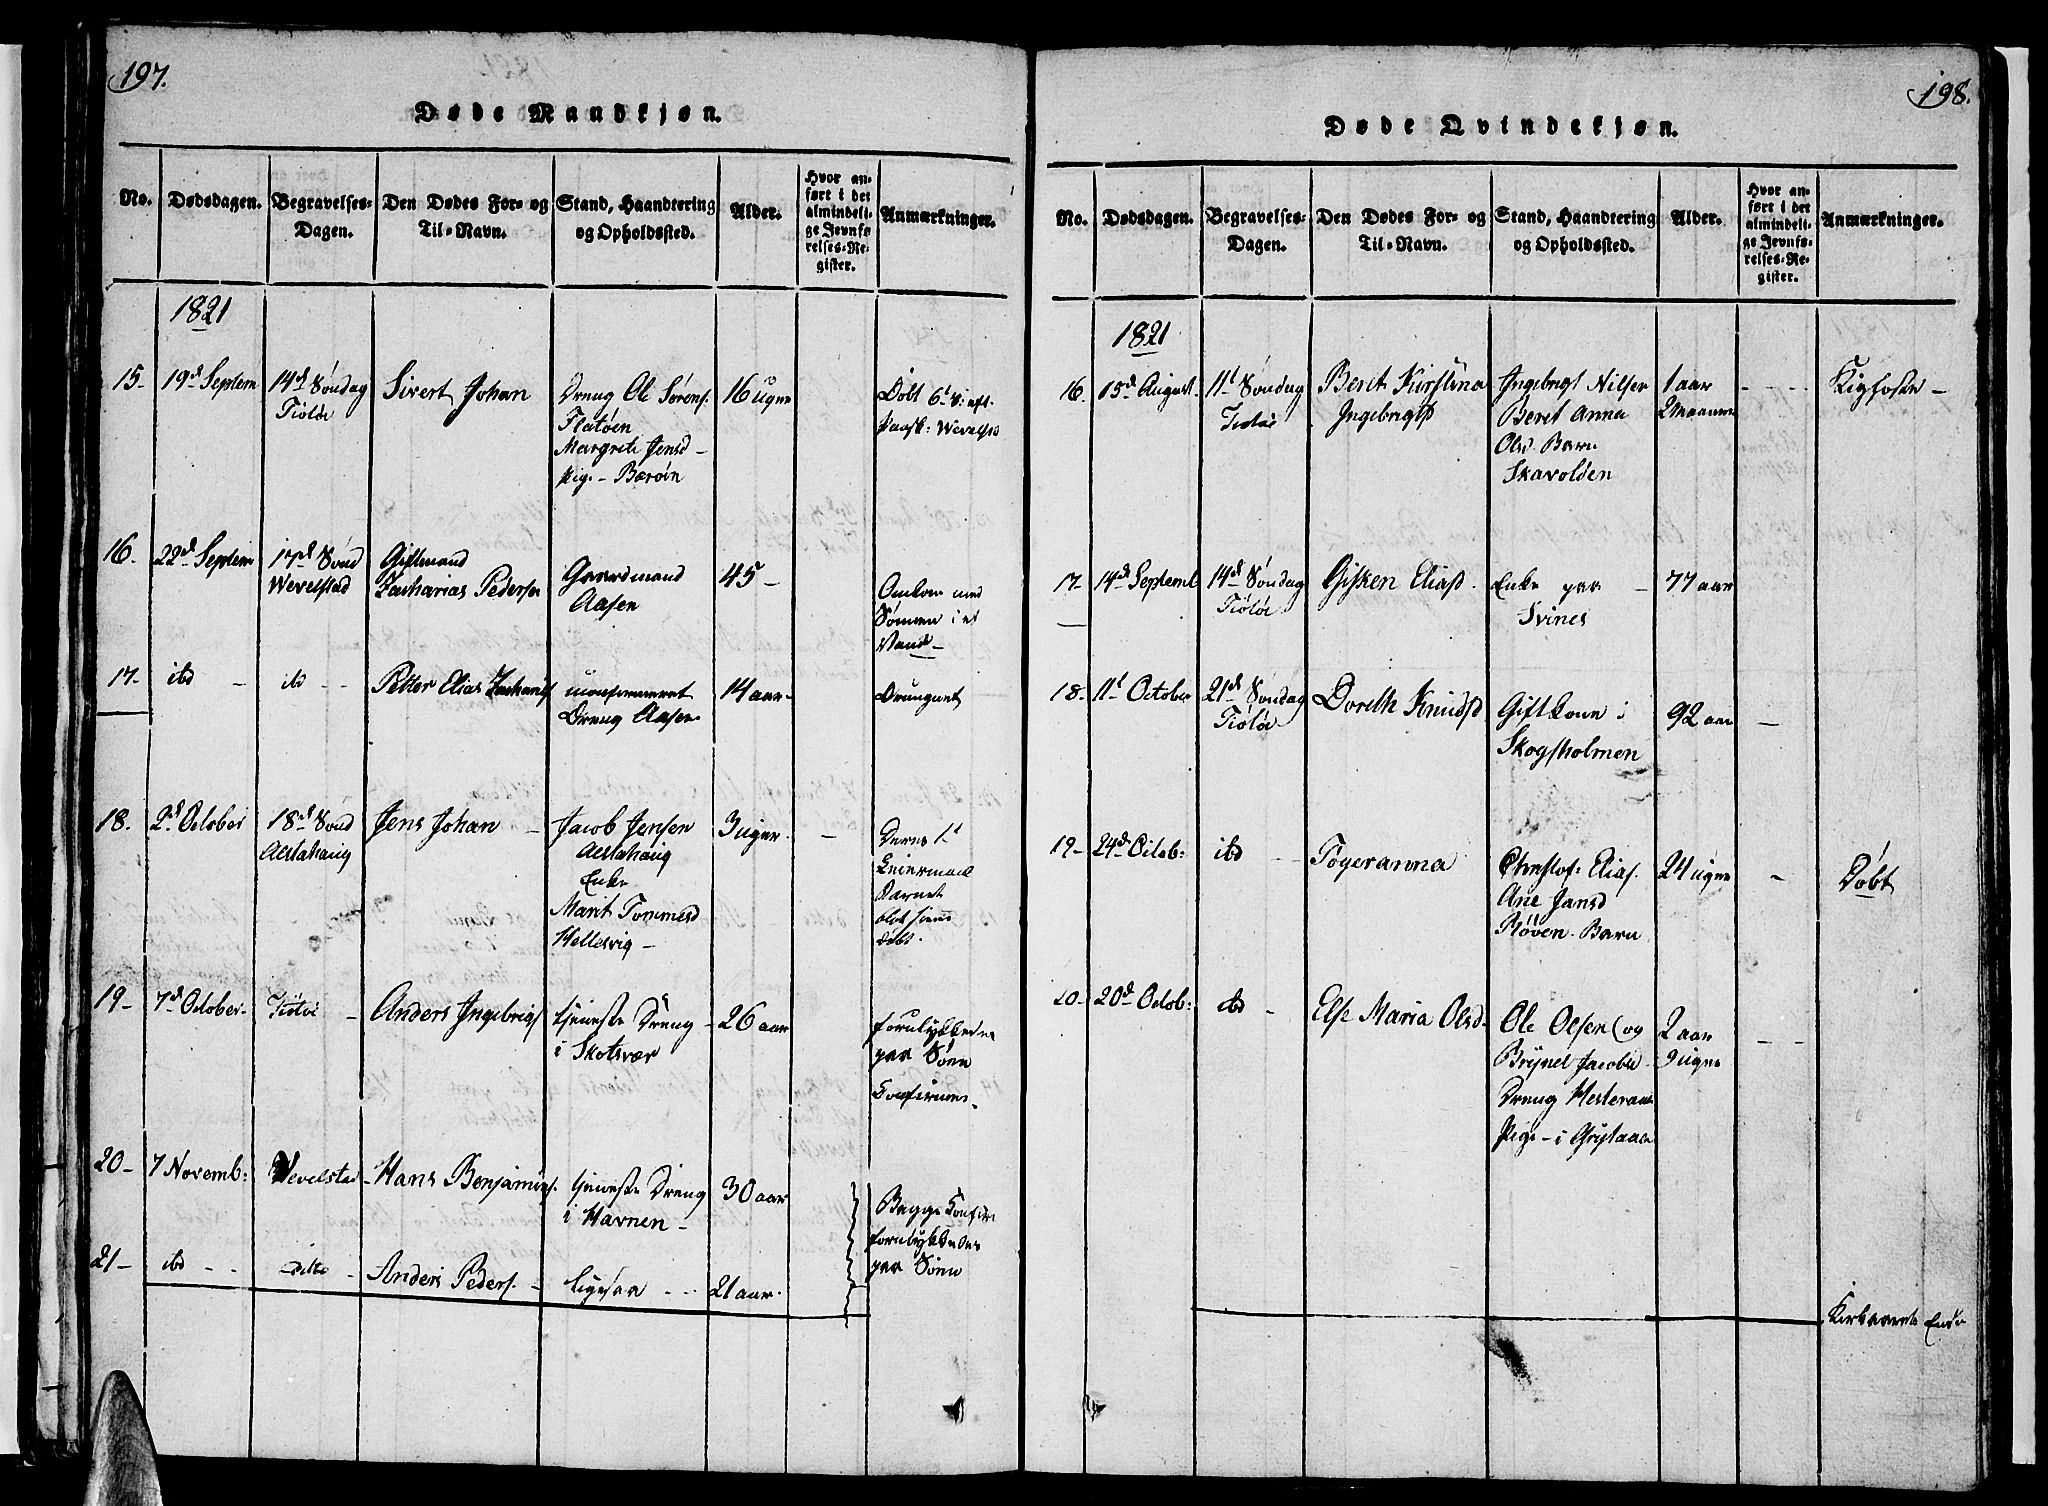 197.
Døde Mandkjøn.
No.
Dødsdagen.
Begravelses-
Dagen.
Den Dødes For- og
Til-Navn.
Stand, Haandtering
og Opholdssted.
Alder.
Hvor an-
ført i det
almindeli-
ge Jevnfø-
relses-Re-
gister.
Anmærkninger.
1821
15-
19d Septem
14d Søndag
Tiøtøe
Sivert Johan
Dreng Ole Sørens.
Flatøen
Margrete Jensd -
Pige - Barøin
16 uger
Døbt 6t
Wevelst
16.
22d Septem
14d Sønd
Wevelstad
Giftmand
Zacharias Pedersen
Gaardmand
Aasen
45 -
Omkom med
Sønnen i et
Vand -
17-
ibd
ibd
Petter Elias Zacharias
uconfirmeret
Dreng Aasen
14 aar
Drungnet
18.
2d October
18d Sønd
Alstahaug
Jens Johan -
Jacob Jensen
Alstahaug
Enke
Marit Tommesd
Hellesvig -
3 uger.
Deres 1t
Leiermaal
Barnet
døbt.
19-
7d October.
Tiøtøe
Anders Ingebrigts
tieneste Dreng
i Skotsvær
26 aar
forulykkede
paa Søen
Confirmer.
20-
7 Novemb:
Wevelstad
Hans Benjamins.
tieneste Dreng
i Havnen -
30 aar
Begge Confir
forulykkedes
paa Søen
21-
ibd
ditto
Anders Peders. -
ligesaa
21 aar.
198.
Døde Qvindekjøn.
No.
Dødsdagen.
Begravelses-
Dagen.
Den Dødes For- og
Til-Navn.
Stand, Haandtering
og Opholdssted.
Alder.
Hvor an-
ført i det
almindeli-
ge Jevnfø-
relses-Re-
gister.
Anmærkninger.
1821
16.
15d August
11t Søndag
Tiøtøe
Berit Kirstina
Ingebrigts
Ingebrigt Nilsen
Beret Anna
Olsd. Barn
Skavolden
1 aar
2 Maaneder
Kighoste -
17-
14d Septemb
14d Søndag
Tiøtøe
Gisken Eliasd.
Enke paa
Svines
77 aar
18.
11t October
21d Søndag
Tiøtøe
Doreth Knudsd
Giftkone i
Skogsholmen
92 aar
19-
24d Octob:
ibd
Tøgeranna
Christof: Elias.
Ane Jansd
Røven. Barn
24 uger
Døbt
20-
20d Octob:
ibd
Else Maria Olsd.
Ole Olsen og
Brynel Jacobs
Dreng
Pige - i
2 aar
9 uger
Kirkeaarets Ende